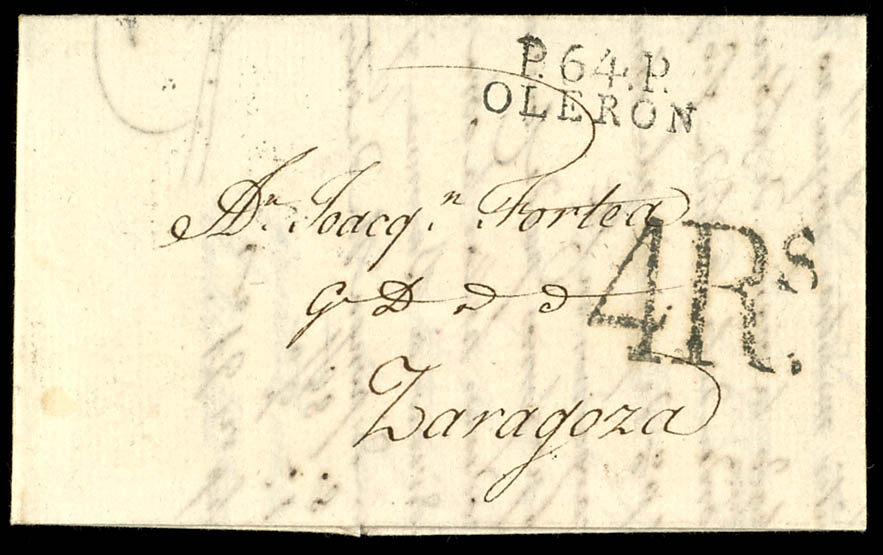 P.64.P.
OLERON
Dn. Joacqn. Fortea
4Rs.
G D d d
Zaragoza